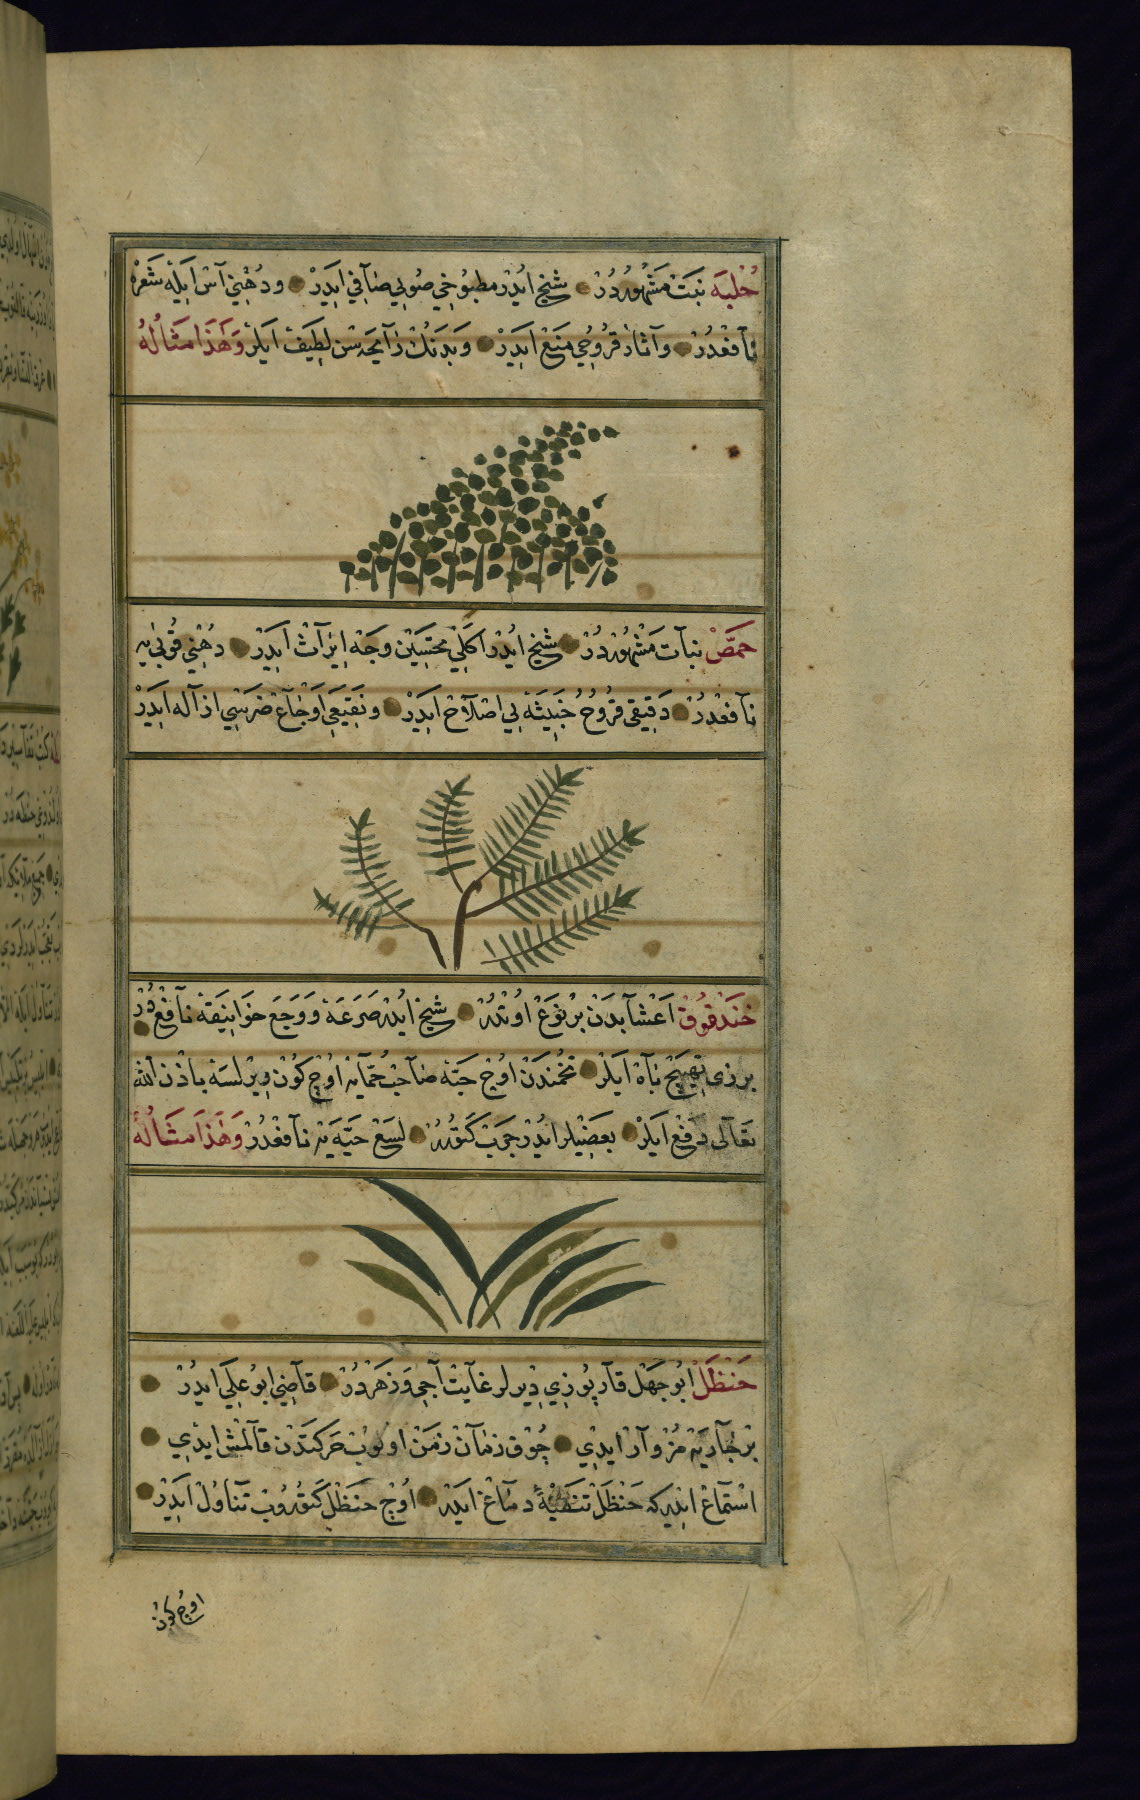 حُلْبَه نَبَتْ مَشْهُورْدُرْ شَيْخ ايُدْر مطبُوخِي صُوبِي صَافِي ايَدَرْ ودُهْنِي آسْ ايَلِه شَعْرَه
نَافِعْدُرْ وَآثَارْ قُرُوحِي مَنَعْ ايَدَرْ وَبَدَنُكْ رَايِحَه سَنْ لِطَيفْ ايَلَرْ وَهَذَا مِثَالُهُ
حِمَّصْ نَبَات مَشْهُورْدُرْ شَيْخ ايُدْر اَكَلِي تَحْسِين وَجَه ايرَاثْ ايَدَرْ دهْنِي قُوبَايَه
نَافِعْدُرْ دَقِيقِي قُرُوحُ خَبِيثَه يِي اصْلَاحْ ايَدَرْ ونَقِيعِي اَوْجَاعْ ضَرسَي ازاله ايَدَرْ
حَنْدَقُوقْ اَعْشَابدَنْ بِرْ نَوْعْ اوُتْدُرْ شَيْخ ايُدر صَرَعَه وَوَجَعِ خَوَاصِرَه نَافِعْ دُرْ
بزرى تهييج باه ايلر تخمندن اوچ حبّه صاحب حمّايه اوچ كون ويرلسه باذن الله
تعالى دفع ايلر بعضيلر ايدر جرب كتورر لسع حيّه يه نافعدر وَهَذَا مِثَالُهُ
حَنْظَلْ ابُو جَهْل قارپُوزِي دِيرلر غايت آجي وَزهَرْدُرْ قاضِي ابو عَلِي ايدُرْ
بر جاريه مز وار ايدي چوق زمان زمن اولوب حركتدن قالمش ايدي
استماع ايدر كه حنظل تنقيهٔ دماغ ايلر اوچ حنظل كتوروب تناول ايدر
اوچ كون